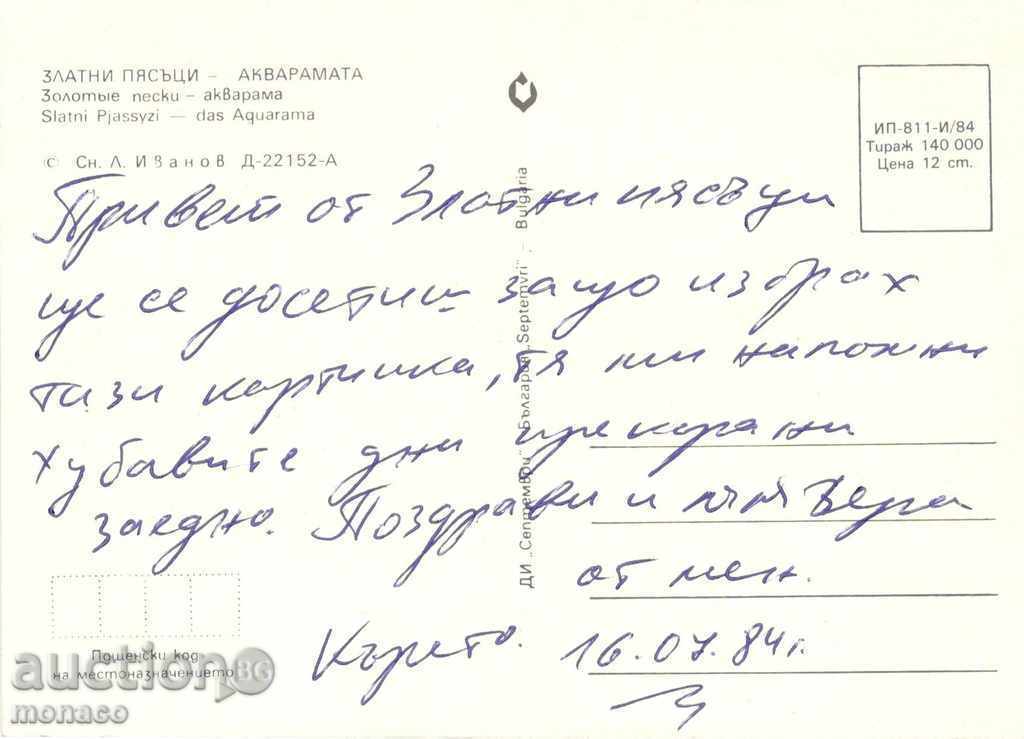 ЗЛАТНИ ПЯСЪЦИ – АКВАРАМАТА
Золотые пески – акварама
Slatni Pjassyzi — das Aquarama
© Сн. Л. Иванов Д-22152-А
ИП-811-И/84
Тираж 140 000
Цена 12 ст.
ДИ „Септември" – България „Septemvri" – Bulgaria
Привет от Златни пясъци
ще се досетиш защо избрах
тази картичка, тя ми напомни
хубавите дни прекарани
заедно. Поздрави и
от мен.
16.07.84 г.
Пощенски код
на местоназначението
auction86
monaco